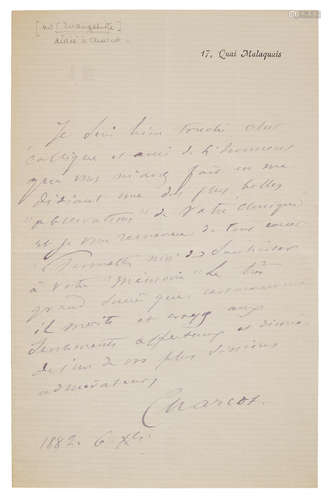 [sur l'Évangéliste
dédié à Charcot]
17, Quai Malaquais
Je suis bien touché cher
et ami de l'honneur
que vous m'avez fait en me
dédiant une des plus belles
"observations" de votre clinique
et je vous remercie de tout coeur
Permettez moi de souhaiter
à votre "Mémoire" le très
grand succès que
il mérite et croyez aux
sentiments affectueux et dévoués
de l'un de vos plus sincères
admirateurs
Charcot.
1882. 6 Xbre